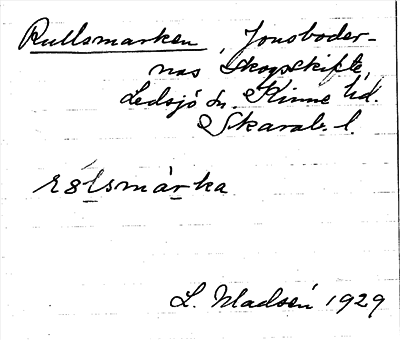 Rullsmarken, Jonsboder-
nas skogsskifte,
Ledsjö sn. Kinne hd.
Skarab. l.
L. Madsén 1929